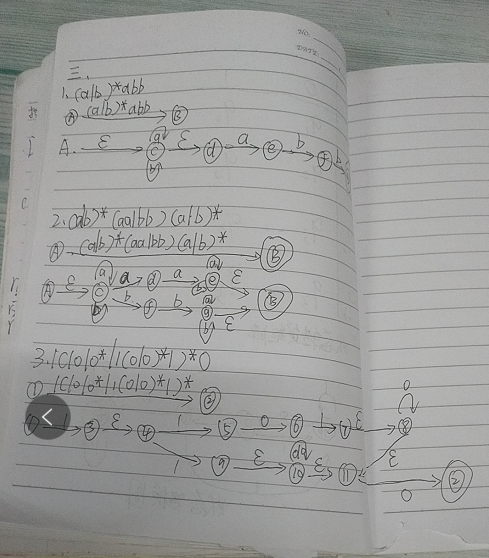 NO.
DATE
三、
1. (a|b)*abb
A (a|b)*abb B
A. ε a c b ε d a e b f b
2. (a|b)* (aa|bb) (a|b)*
A (a|b)* (aa|bb) (a|b)* B
A ε a c a d a a e ε
b b f b a g b ε B
3. 1(010* | 1(010)*1)*0
1 1(010* | 1(010)*1)* 2
1 3 ε 4 1 5 0 6 1 7 ε 8 0
1 9 ε 10 ε 11 ε 0 2